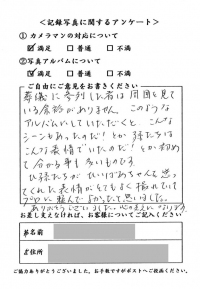 ＜記録写真に関するアンケート＞
①カメラマンの対応について
☑満足 □普通 □不満
②写真アルバムについて
☑満足 □普通 □不満
ご自由にご意見をお書きください
葬儀に参列した者は周囲を見て
いる余裕がありません。このような
アルバムにしていただくと、こんな
シーンもあったのだ！とか孫たちは
こんな表情でいたのだ！とか初め
て分かる事も多いものです。
ひ孫たちがひいばあちゃんを思っ
てくれた表情がとてもよく撮れていて
プロに頼んでよかったと思いました。
ありがとうございました。
お差し支えなければ、お客様についてご記入ください
#名前
#住所
ご協力ありがとうございました。お手数ですがポストへご投函ください。